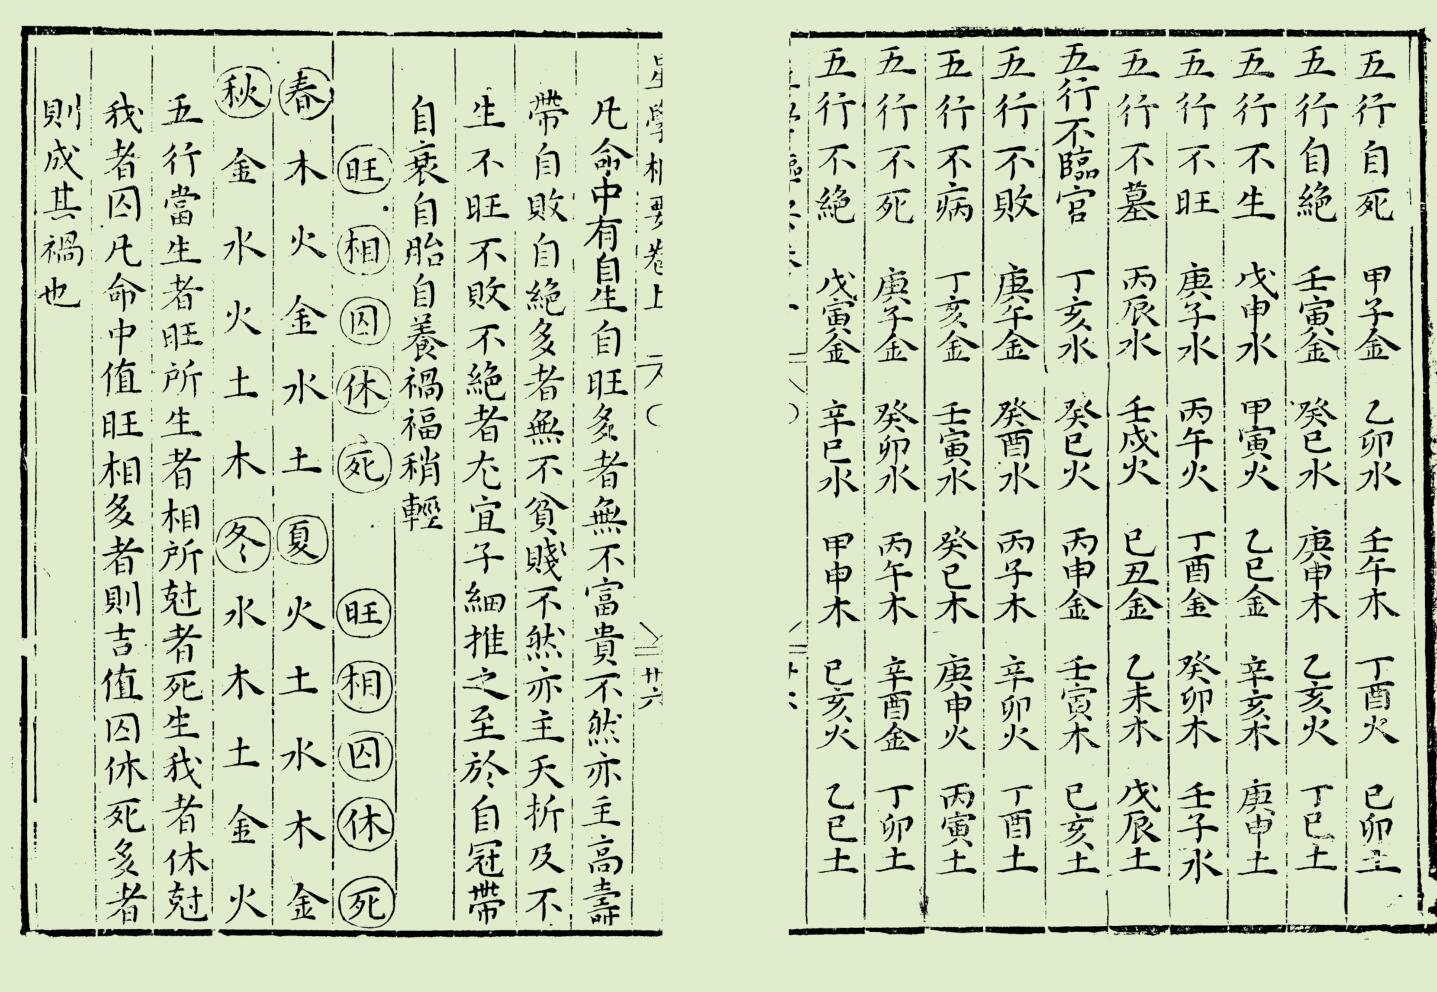 五行自死 甲子金 乙卯水 壬午木 丁酉火 己卯土
五行自絕 壬寅金 癸巳水 庚申木 乙亥火 丁巳土
五行不生 戊申水 甲寅火 乙巳金 辛亥木 庚申土
五行不旺 庚子水 丙午火 丁酉金 癸卯木 壬子水
五行不墓 丙辰水 壬戌火 己丑金 乙未木 戊辰土
五行不臨官 丁亥水 癸巳火 丙申金 壬寅木 己亥土
五行不敗 庚午金 癸酉水 丙子木 辛卯火 丁酉土
五行不病 丁亥金 壬寅水 癸巳木 庚申火 丙寅土
五行不死 庚子金 癸卯水 丙午木 辛酉金 丁卯土
五行不絕 戊寅金 辛巳水 甲申木 己亥火 乙巳土
星學樞要卷上 廿六
凡命中有自生自旺多者無不富貴不然亦主高壽
帶自敗自絕多者無不貧賤不然亦主夭折及不
生不旺不敗不絕者尤宜子細推之至於自冠帶
自衰自胎自養禍福稍輕
旺 相 囚 休 死 旺 相 囚 休 死
春 木 火 金 水 土 夏 火 土 水 木 金
秋 金 水 火 土 木 冬 水 木 土 金 火
五行當生者旺所生者相所尅者死生我者休尅
我者囚凡命中值旺相多者則吉值囚休死多者
則成其禍也